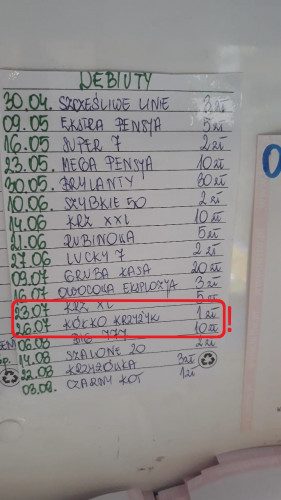 DEBIUTY
30.04. SZCZĘŚLIWE LINIE 3 zł
09.05 EKSTRA PENSJA 5 zł
16.05 SUPER 7 2 zł
23.05 MEGA PENSJA 10 zł
30.05 BRYLANTY 30 zł
10.06 SZYBKIE 50 2 zł
14.06 KRZ XXL 10 zł
21.06 RUBINOWA 5 zł
27.06 LUCKY 7 2 zł
09.07 GRUBA KASA 20 zł
16.07 OWOCOWA EKSPLOZJA 3 zł
23.07 KRZ XL 5 zł
26.07 KÓŁKO KRZYŻYK 1 zł !
06.08 BIG 777 10 zł
14.08 SZALONE 20 2 zł
22.08 KRZYŻÓWKA 3 zł
03.09. CZARNY KOT 1 zł